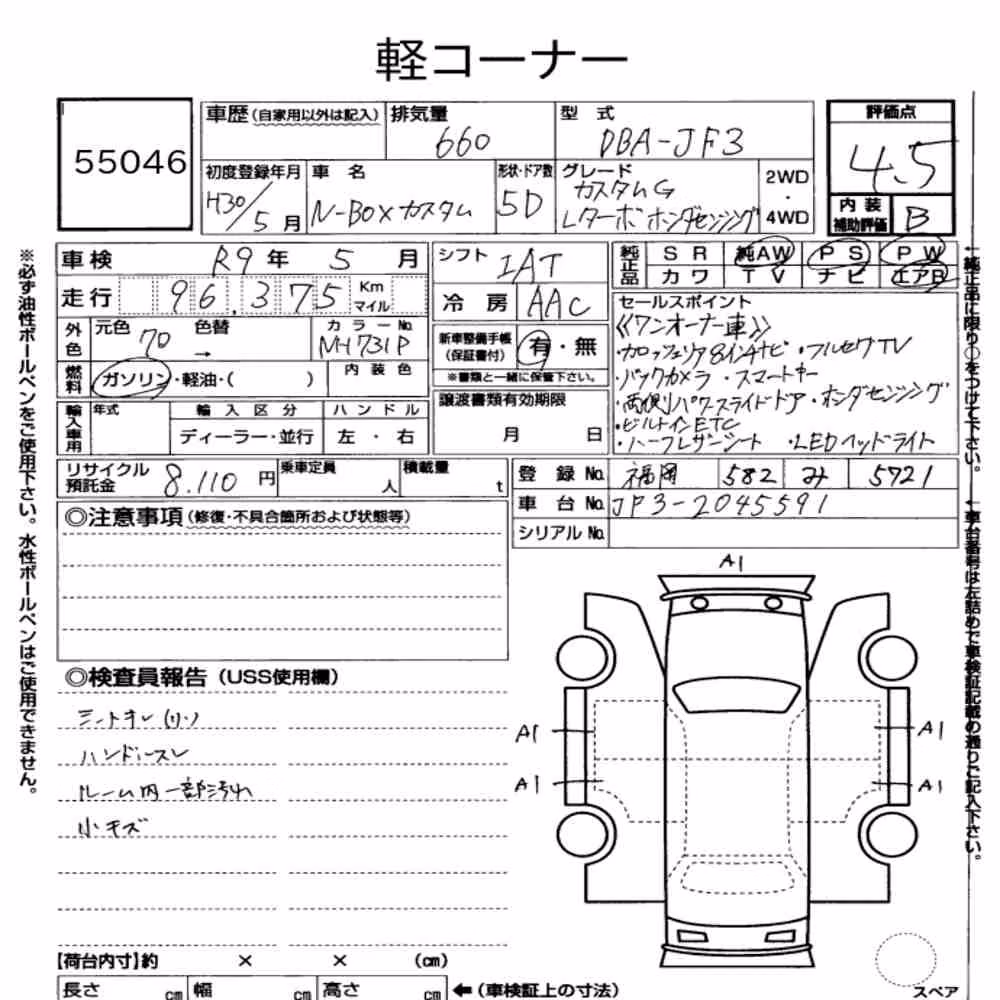 軽コーナー
55046
車歴(自家用以外は記入) 排気量 型式
660 DBA-JF3
初度登録年月 車名 形状・ドア数 グレード
H30/5月 N-BOXカスタム 5D カスタムG Lターボ ホンダセンシング 2WD・4WD
評価点
4.5
内装補助評価 B
車検 R9年5月
走行 96,375 Km マイル
外色 元色 70 色替 → カラーNo. 
燃料 ガソリン・軽油・( ) 内装色
輸入車用 年式 輸入区分 ハンドル
ディーラー・並行 左・右
シフト IAT
冷房 AAC
新車整備手帳(保証書付) 有・無
※書類と一緒に保管下さい。
譲渡書類有効期限
月 日
純正品 SR 純AW PS PW
カワ TV ナビ エアB
セールスポイント
《ワンオーナー車》
・カロッツェリア8インチナビ ・フルセグTV
・バックカメラ ・スマートキー
・両側パワースライドドア・ホンダセンシング
・ビルトインETC
・ハーフレザーシート ・LEDヘッドライト
リサイクル預託金 8,110円 乗車定員 人 積載量 t
登録No. 福岡 582 み 5721
車台No. JF3-2045591
シリアルNo.
◎注意事項(修復・不具合箇所および状態等)
◎検査員報告(USS使用欄)
ハンドルスレ
ルーム内一部汚れ
小キズ
A1
A1
A1
A1
A1
スペア
【荷台内寸】約 × × (cm)
長さ cm 幅 cm 高さ cm ←(車検証上の寸法)
※必ず油性ボールペンをご使用下さい。水性ボールペンはご使用できません。
←純正品に限り○をつけて下さい。
←車台番号は左詰めで車検証記載の通りご記入下さい。